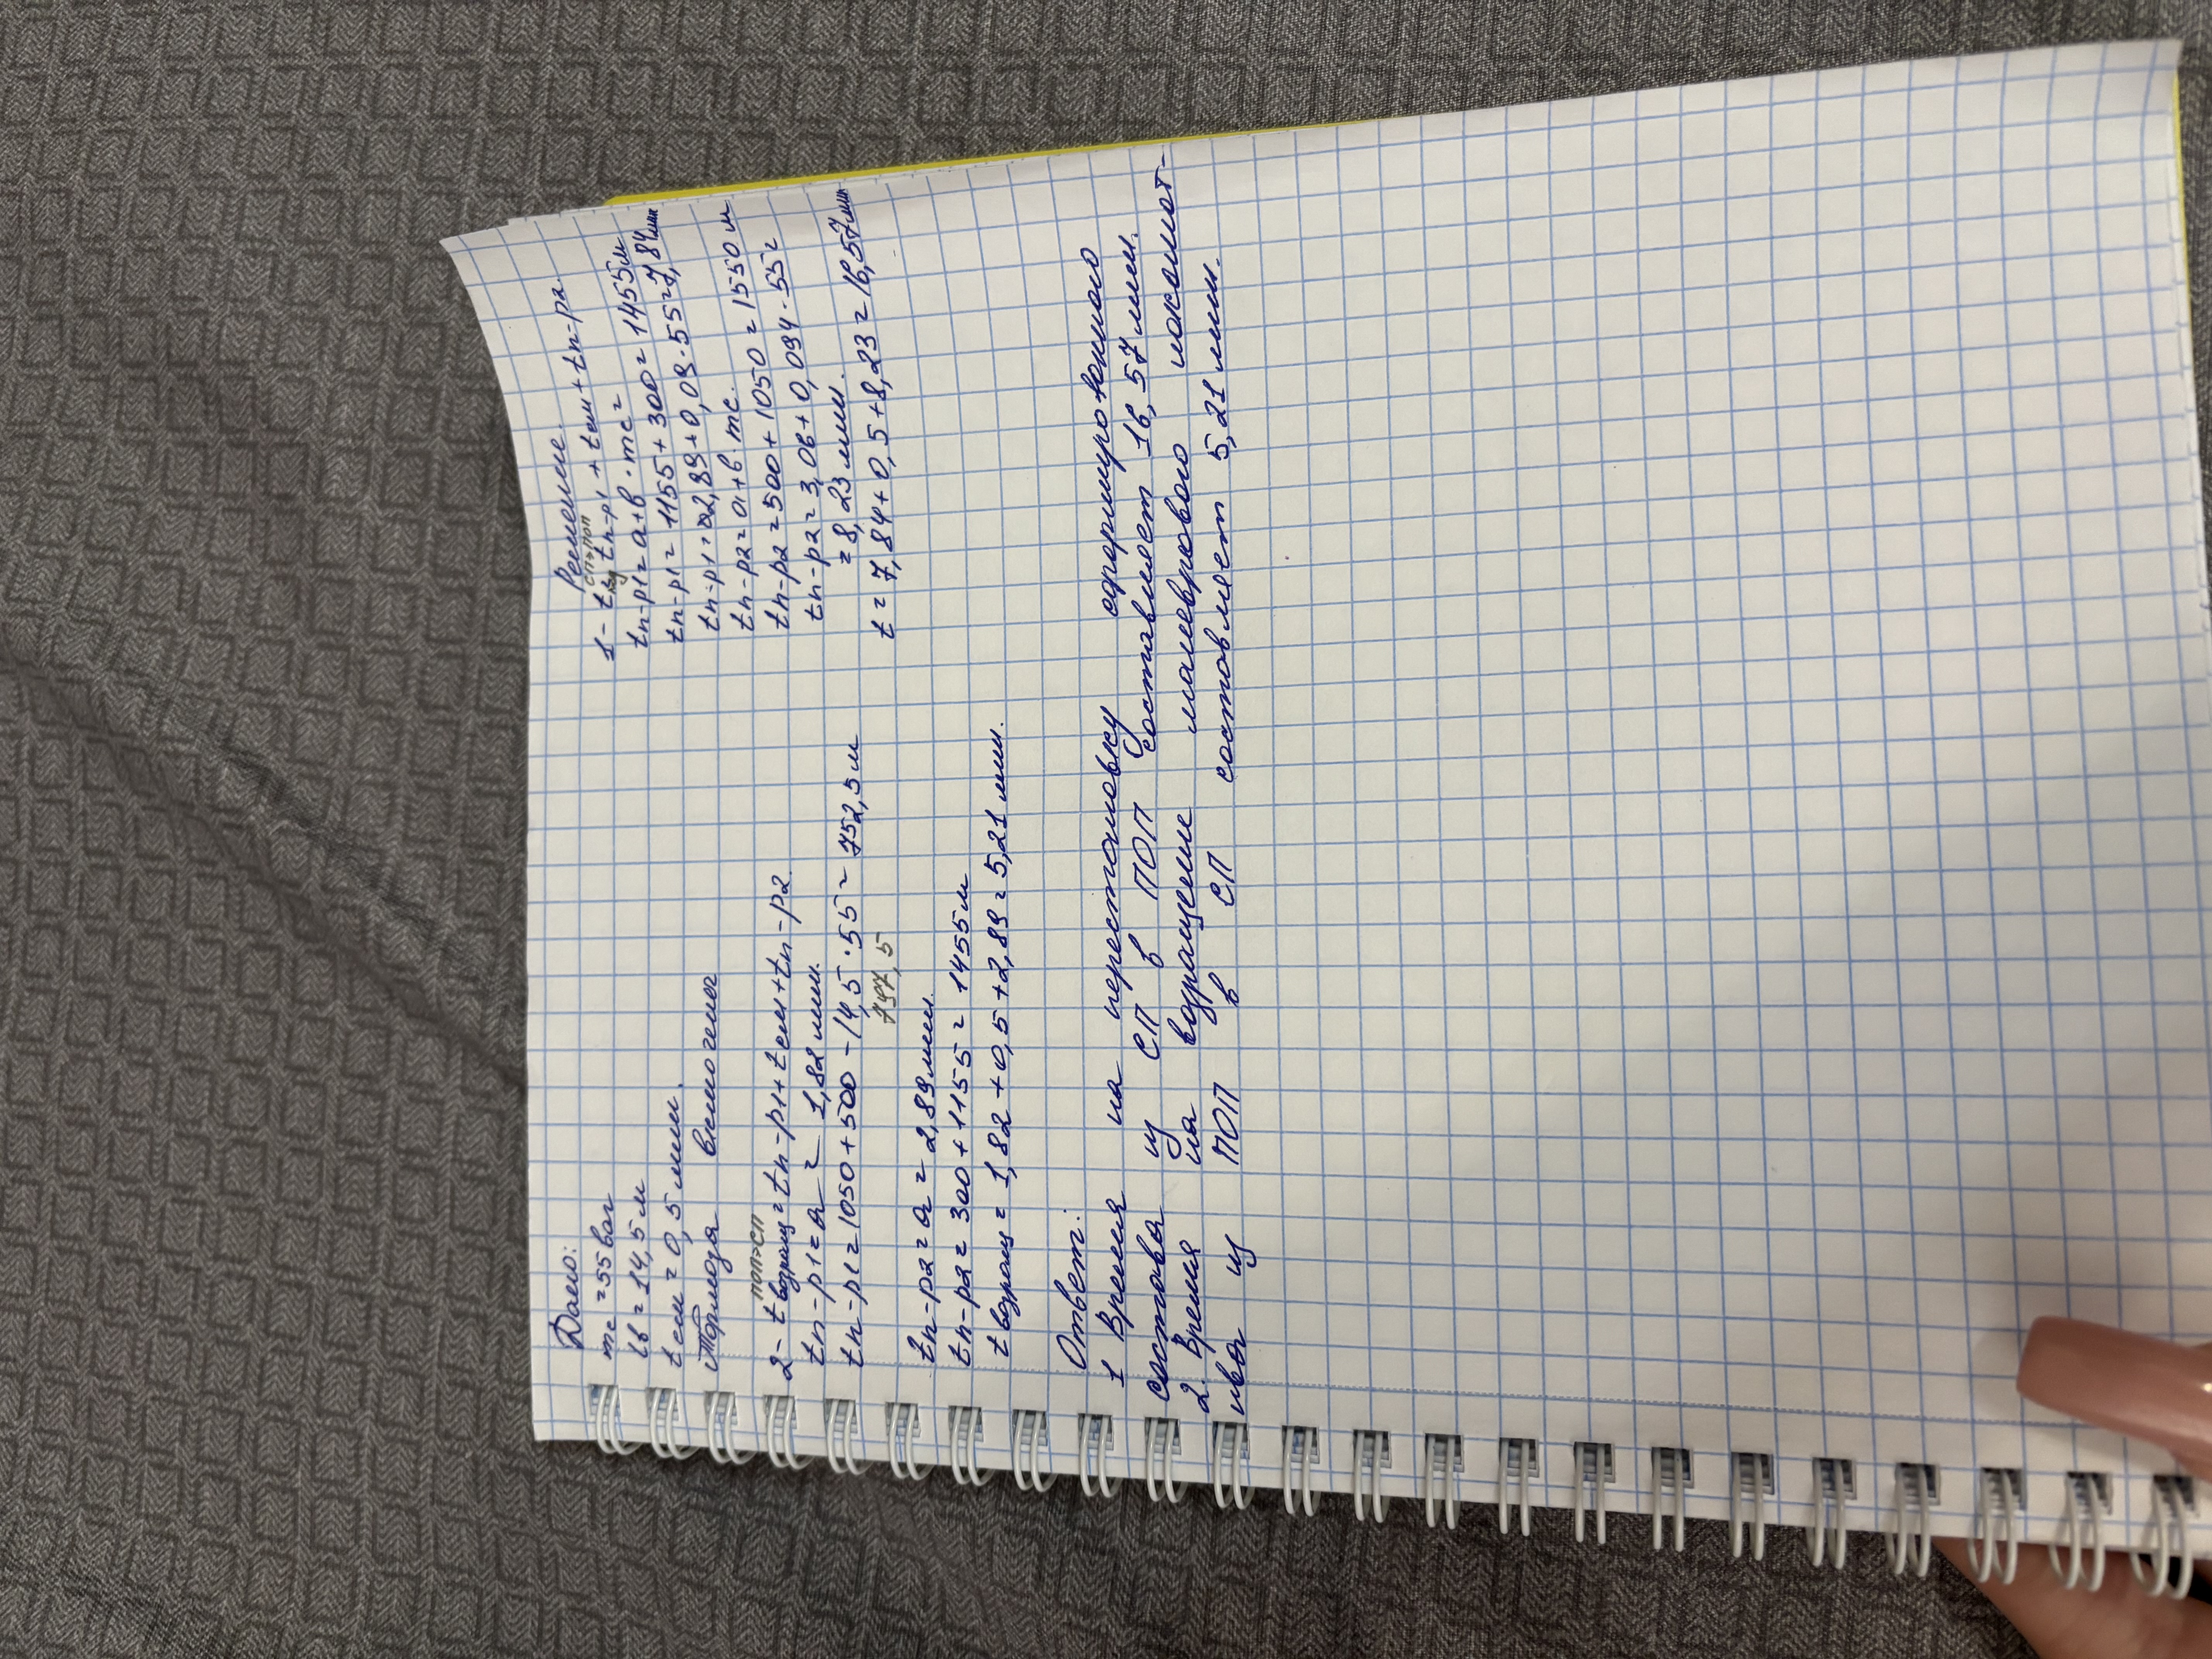 Дано:
mc = 55 ваг
lв = 14,5 м
tсм = 0,5 мин.
Тормоза включены
Решение.
сп→поп
1 - t = tп-р1 + tсм + tп-р2.
tп-р1 = а+в · mc =
tп-р1 = 1155 + 300 = 1455 м
tп-р1 = 2,89 + 0,09 · 55 = 7,84 мин
tп-р2 = а + в · mc.
tп-р2 = 500 + 1050 = 1550 м
tп-р2 = 3,06 + 0,094 · 55 =
= 8,23 мин.
t = 7,84 + 0,5 + 8,23 = 16,57 мин
поп→сп
2 - t возвращ = tп-р1 + tсм + tп-р2.
tп-р1 = а = 1,82 мин.
tп-р1 = 1050 + 500 - 14,5 · 55 = 752,5 м
797,5
tп-р2 = а = 2,89 мин.
tп-р2 = 300 + 1155 = 1455 м
t возвращ = 1,82 + 0,5 + 2,89 = 5,21 мин.
Ответ:
1 Время на перестановку сформированного
состава из СП в ПОП составляет 16,57 мин.
2. Время на возращение маневрового локомот-
ива из ПОП в СП составляет 5,21 мин.